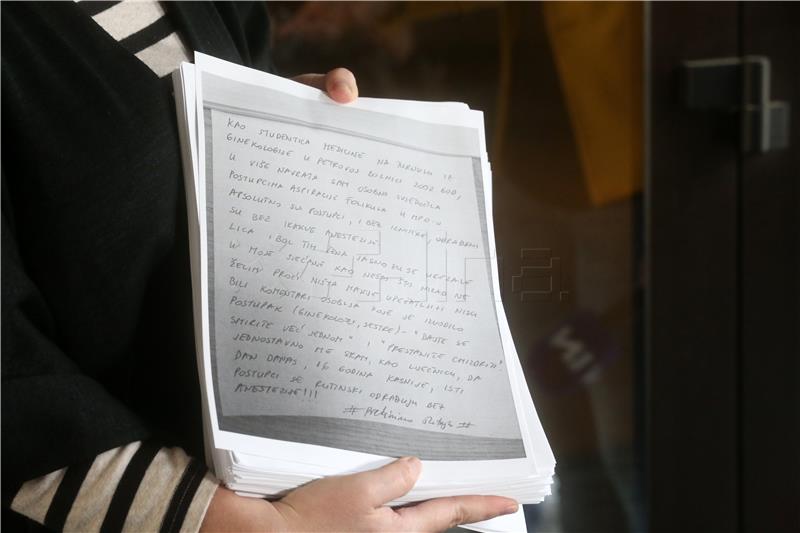 KAO STUDENTICA MEDICINE NA TURNUSU IZ
GINEKOLOGIJE U PETROVOJ BOLNICI 2002. GOD,
U VIŠE NAVRATA SAM OSOBNO SVJEDOČILA
POSTUPCIMA ASPIRACIJE FOLIKULA U MPO-U
APSOLUTNO SVI POSTUPCI, I BEZ IZNIMKE, ODRAĐENI
SU BEZ IKAKVE ANESTEZIJE
LICA I BOL TIH ŽENA JASNO SU SE UREZALE
U MOJE SJEĆANJE KAO NEŠTO ŠTO NIKAD NE
ŽELIM PROĆI NIŠTA MANJE UPEČATLJIVI NISU
BILI KOMENTARI OSOBLJA KOJE JE IZVODILO
POSTUPAK (GINEKOLOZI, SESTRE) - "DAJTE SE
SMIRITE VEĆ JEDNOM", I "PRESTANITE CMIZDRITI"
JEDNOSTAVNO ME SRAM, KAO LIJEČNICU, DA
DAN DANAS, 16 GODINA KASNIJE, ISTI
POSTUPCI SE RUTINSKI ODRAĐUJU BEZ
ANESTEZIJE!!!
# prekinimo šutnju #